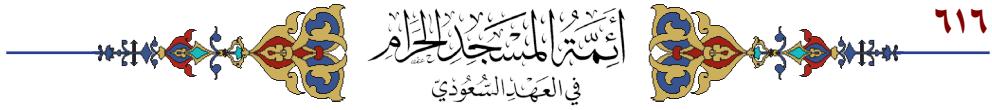 ٦١٦
أَئِمَّةُ المَسْجِدِ الحَرَامِ
فِي العَهْدِ السُّعُودِيّ